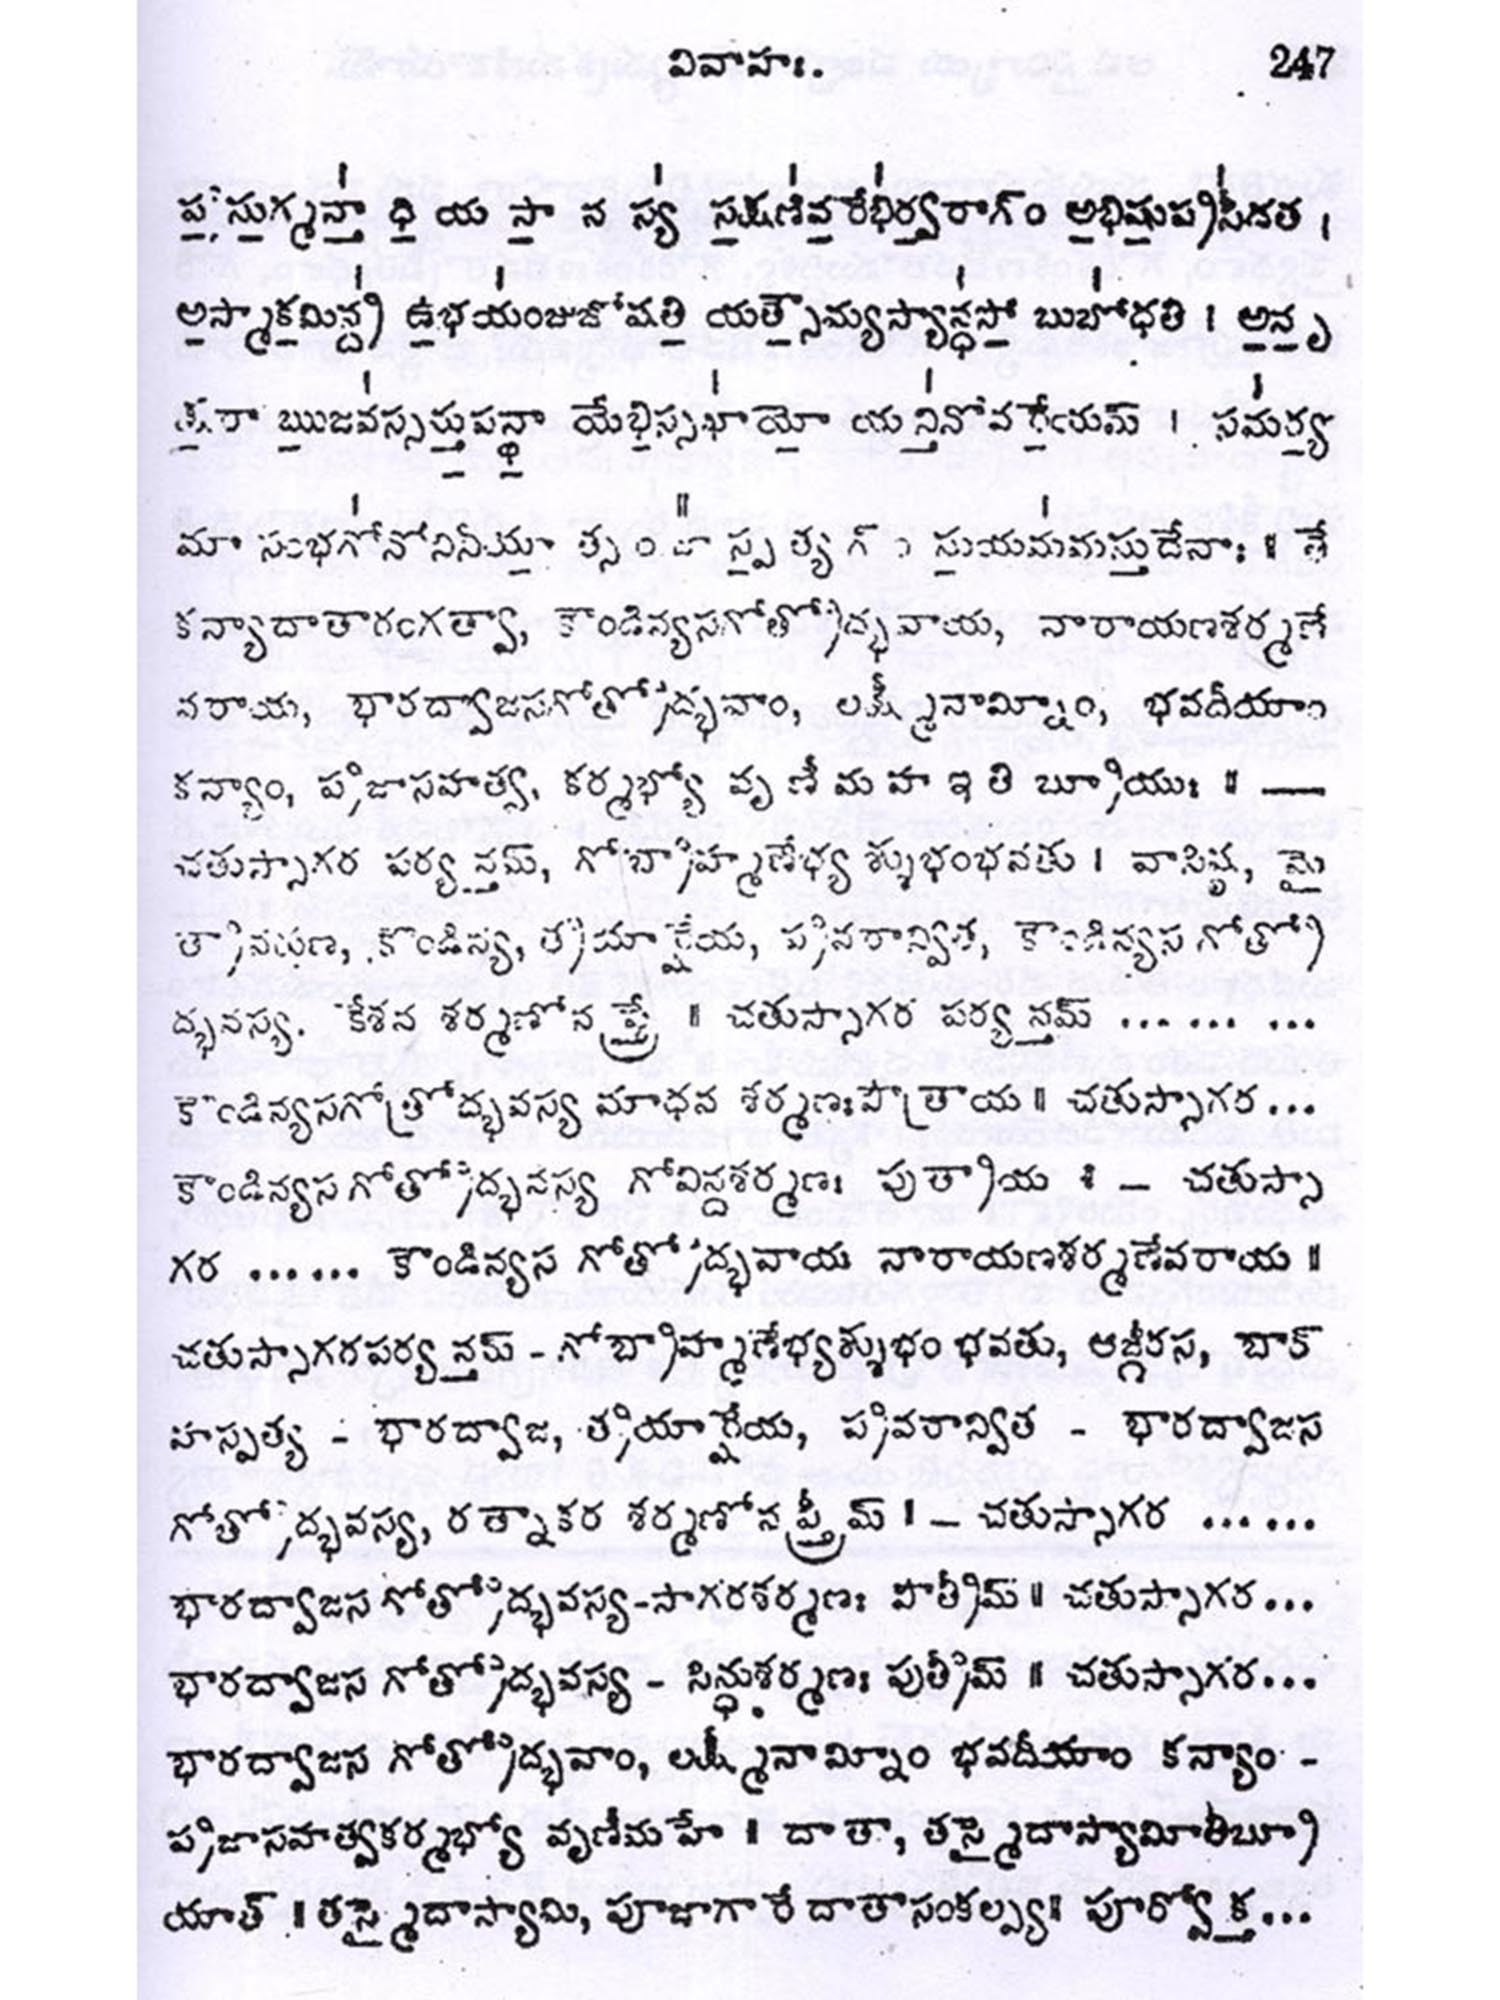 వివాహః. 247
ప్ర సుగ్మన్తా ధి య సా న స్య సక్షణి వరేభిర్వరాగ్ం అభిషుప్రసీదత ।
అస్మాకమిన్ద్ర ఉభయంజుజోషతి యత్సౌమ్యస్యాన్ధసో బుబోధతి । అనృ
క్షరా ఋజవస్సన్తుపన్థా యేభిస్సఖాయో యన్తినోవరేయమ్ । సమర్య
మా సంభగోనోనినీయా త్సం జా స్పత్యగ్ం సుయమమస్తుదేవాః ॥ తే
కన్యాదాతారంగత్వా, కౌండిన్యసగోత్రోద్భవాయ, నారాయణశర్మణే
వరాయ, భారద్వాజసగోత్రోద్భవాం, లక్ష్మీనామ్నీం, భవదీయాం
కన్యాం, ప్రజాసహత్వ, కర్మభ్యో వృణీమహ ఇతి బ్రూయుః ॥ —
చతుస్సాగర పర్యన్తమ్, గోబ్రాహ్మణేభ్య శ్శుభంభవతు । వాసిష్ఠ, మై
త్రావరుణ, కౌండిన్య, త్ర్యార్షేయ, ప్రవరాన్విత, కౌండిన్యస గోత్రో
ద్భవస్య. కేశవ శర్మణోనప్త్రే ॥ చతుస్సాగర పర్యన్తమ్ ... ... ...
కౌండిన్యసగోత్రోద్భవస్య మాధవ శర్మణఃపౌత్రాయ॥ చతుస్సాగర...
కౌండిన్యస గోత్రోద్భవస్య గోవిన్దశర్మణః పుత్రాయ ॥ – చతుస్సా
గర ...... కౌండిన్యస గోత్రోద్భవాయ నారాయణశర్మణేవరాయ ॥
చతుస్సాగరపర్యన్తమ్ - గోబ్రాహ్మణేభ్యశ్శుభం భవతు, ఆఙ్గీరస, బార్
హస్పత్య - భారద్వాజ, త్రయార్షేయ, ప్రవరాన్విత - భారద్వాజస
గోత్రోద్భవస్య, రత్నాకర శర్మణోనప్త్రీమ్ । – చతుస్సాగర ......
భారద్వాజస గోత్రోద్భవస్య-సాగరశర్మణః పౌత్రీమ్ ॥ చతుస్సాగర...
భారద్వాజస గోత్రోద్భవస్య - సిన్ధుశర్మణః పుత్రీమ్ ॥ చతుస్సాగర...
భారద్వాజస గోత్రోద్భవాం, లక్ష్మీనామ్నీం భవదీయాం కన్యాం -
ప్రజాసహత్వకర్మభ్యో వృణీమహే ॥ దాతా, తస్మైదాస్యామీతిబ్రూ
యాత్ ॥ తస్మైదాస్యామి, పూజాగారే దాతాసంకల్ప్య॥ పూర్వోక్త...